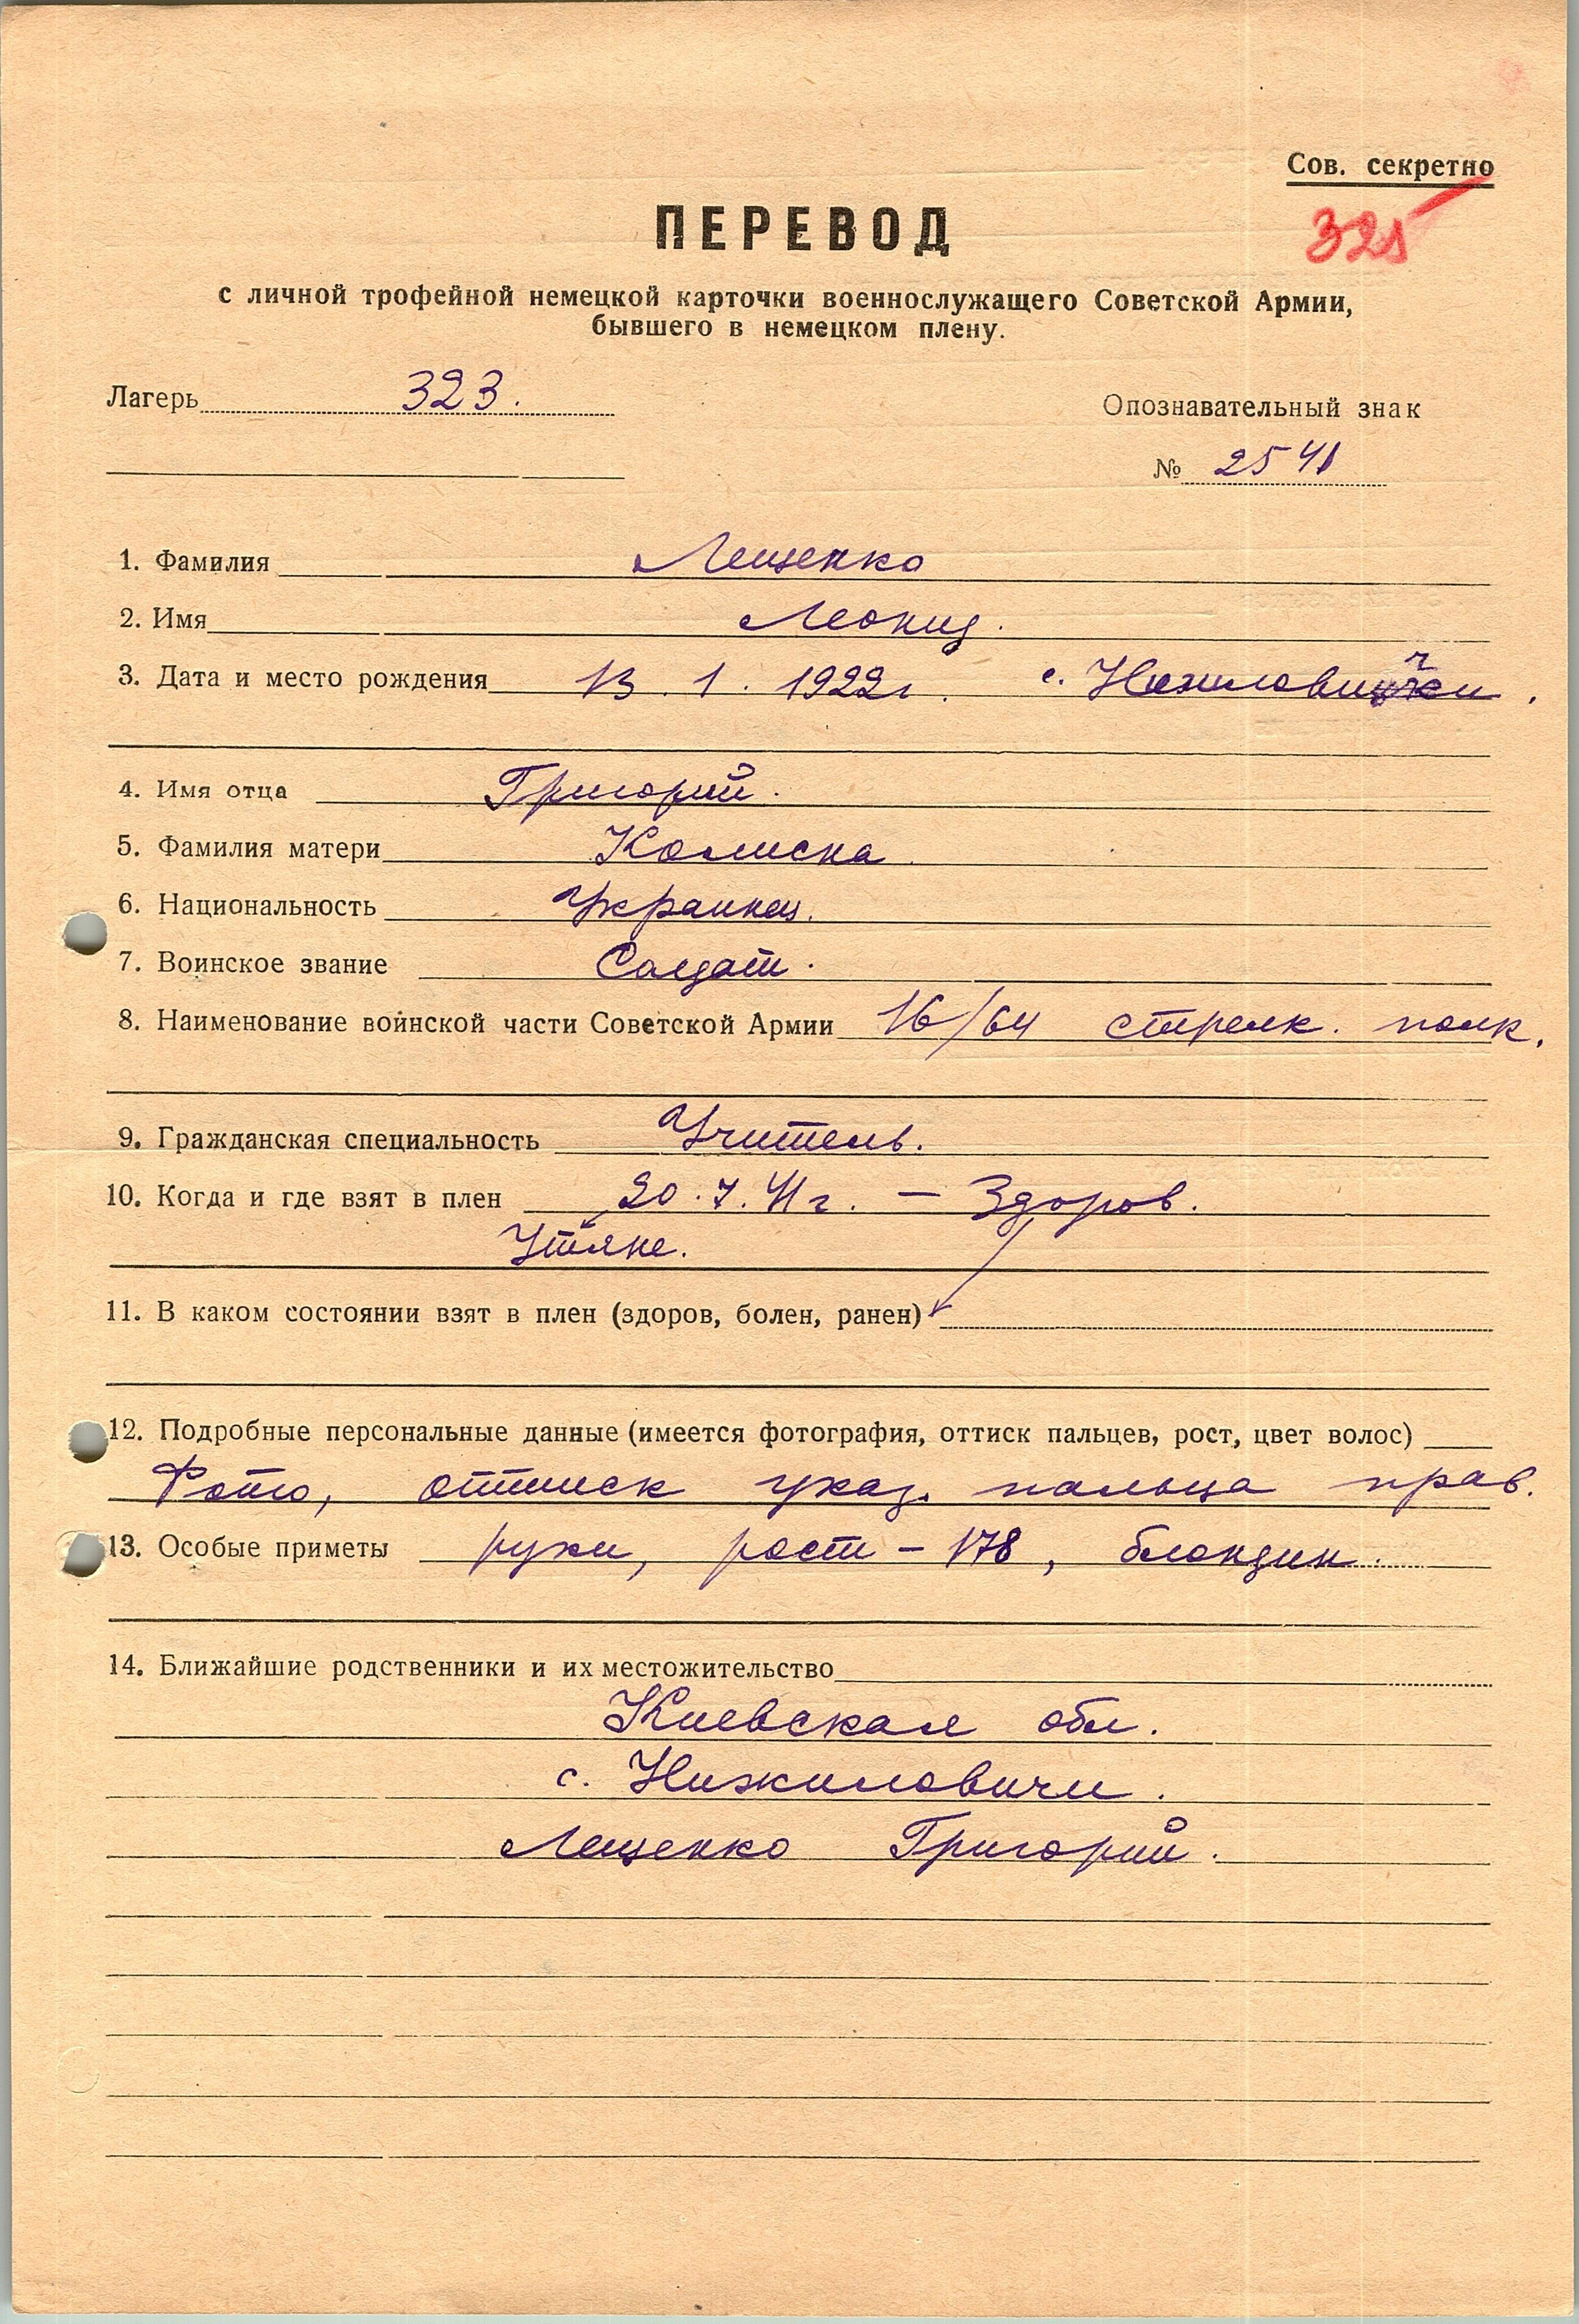 Сов. секретно
325
ПЕРЕВОД
с личной трофейной немецкой карточки военнослужащего Советской Армии,
бывшего в немецком плену.
Лагерь 323.
Опознавательный знак
№ 2541
1. Фамилия Лещенко
2. Имя Леонид.
3. Дата и место рождения 13. 1. 1922г. с.
4. Имя отца Григорий.
5. Фамилия матери Колиска.
6. Национальность Украинец.
7. Воинское звание Солдат.
8. Наименование воинской части Советской Армии 16/64 стрелк. полк.
9. Гражданская специальность Учитель.
10. Когда и где взят в плен 20.7.41г. — Здоров.
Утяне.
11. В каком состоянии взят в плен (здоров, болен, ранен)
12. Подробные персональные данные (имеется фотография, оттиск пальцев, рост, цвет волос)
Фото, оттиск указ. пальца прав.
13. Особые приметы руки, рост – 178, блондин.
14. Ближайшие родственники и их местожительство
Киевская обл.
с. Нижиловичи.
Лещенко Григорий.